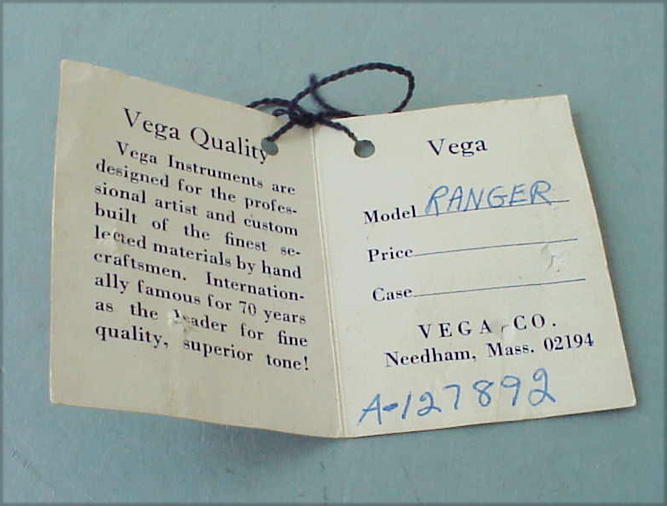 Vega Quality
Vega Instruments are
designed for the profes-
sional artist and custom
built of the finest se-
lected materials by hand
craftsmen. Internation-
ally famous for 70 years
as the leader for fine
quality, superior tone!
Vega
Model RANGER
Price
Case
VEGA CO.
Needham, Mass. 02194
A-127892